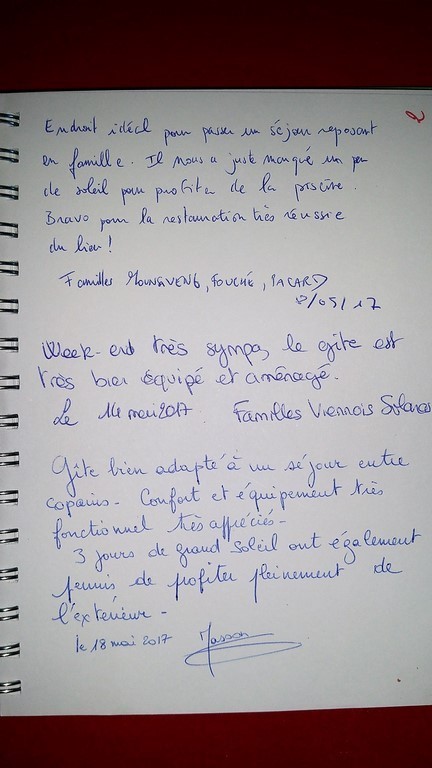 Endroit idéal pour passer un séjour reposant
en famille. Il nous a juste manqué un peu
de soleil pour profiter de la piscine.
Bravo pour la restauration très réussie
du lieu !
Familles FOUCHÉ,
8/05/17
Week-end très sympa, le gîte est
très bien équipé et aménagé.
Le 14 mai 2017 Familles Viennois
Gîte bien adapté à un séjour entre
copains - Confort et équipement très
fonctionnel très appréciés -
3 jours de grand soleil ont également
permis de profiter pleinement de
l'extérieur -
le 18 mai 2017 Masson